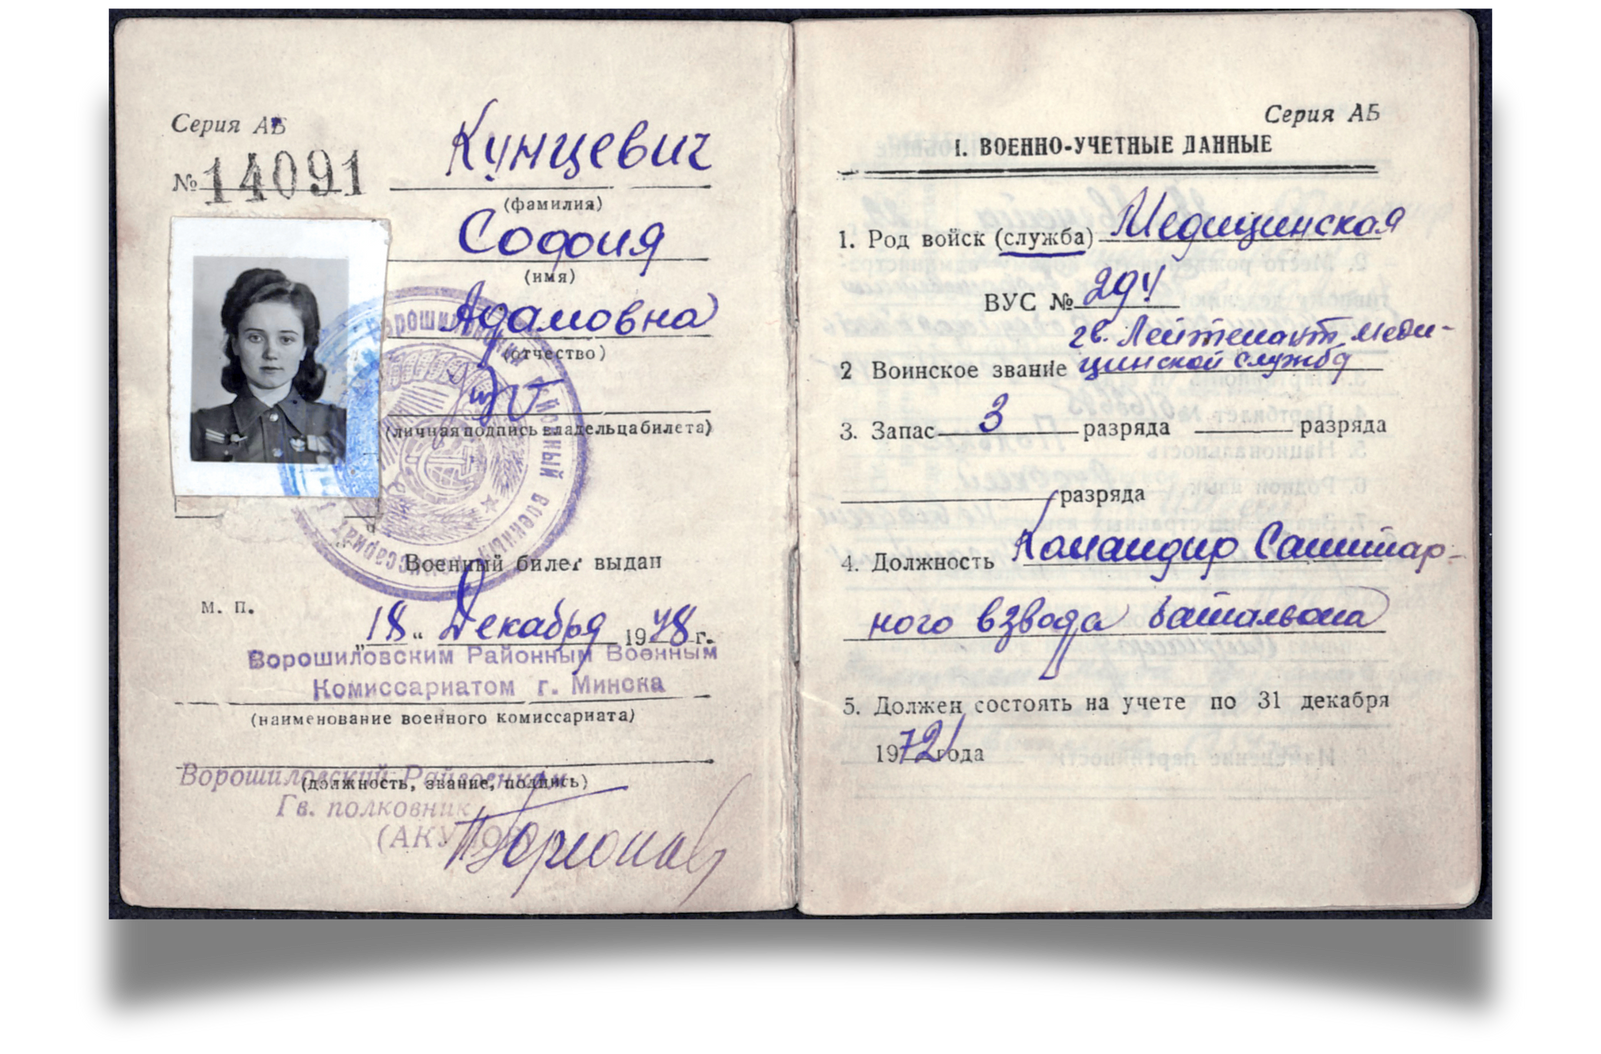 Серия АБ
№ 14091
Кунцевич
(фамилия)
София
(имя)
Адамовна
(отчество)
(личная подпись владельца билета)
Военный билет выдан
м. п.
„18“ Декабря 1948 г.
Ворошиловским Районным Военным
Комиссариатом г. Минска
(наименование военного комиссариата)
Ворошиловский Райвоенком
(должность, звание, подпись)
Гв. полковник
Серия АБ
1. ВОЕННО-УЧЕТНЫЕ ДАННЫЕ
1. Род войск (служба) Медицинская
ВУС № 294
гв. Лейтенант меди-
2 Воинское звание цинской службы
3. Запас 3 разряда разряда
разряда
4. Должность Командир Санитар-
ного взвода батальона
5. Должен состоять на учете по 31 декабря
1972 года